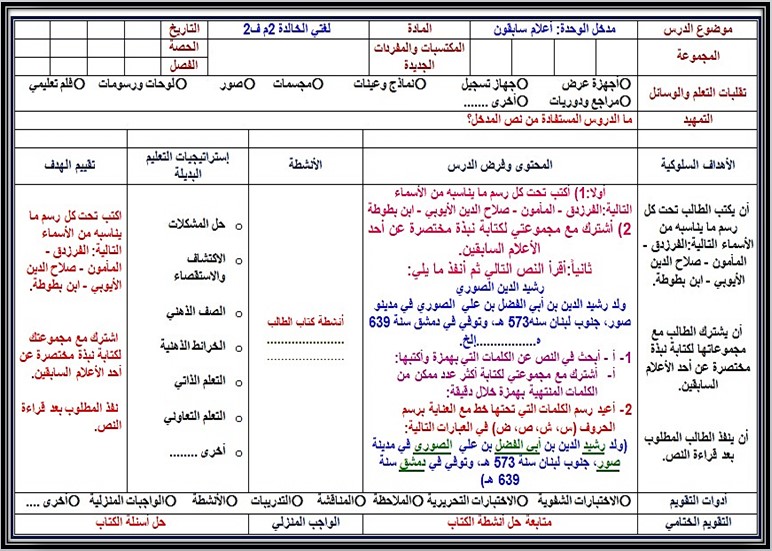 موضوع الدرس
مدخل الوحدة: أعلام سابقون
المادة
لغتي الخالدة 2م ف2
التاريخ
المجموعة
المكتسبات والمفردات
الجديدة
الحصة
الفصل
تقليات التعلم والوسائل
Oأجهزة عرض Oجهاز تسجيل Oنماذج وعينات Oمجسمات Oصور Oلوحات ورسومات Oفلم تعليمي
Oمراجع ودوريات Oأخرى .......
التمهيد
ما الدروس المستفادة من نص المدخل؟
الأهداف السلوكية
المحتوى وفرض الدرس
الأنشطة
إستراتيجيات التعليم
البديلة
تقييم الهدف
أن يكتب الطالب تحت كل
رسم ما يناسبه من
الأسماء التالية:الفرزدق -
المأمون - صلاح الدين
الأيوبي - ابن بطوطة.
أن يشترك الطالب مع
مجموعاتها لكتابة نبذة
مختصرة عن أحد الأعلام
السابقين.
أن ينفذ الطالب المطلوب
بعد قراءة النص.
أولا:1) أكتب تحت كل رسم ما يناسبه من الأسماء
التالية:الفرزدق - المأمون - صلاح الدين الأيوبي - ابن بطوطة
2) أشترك مع مجموعتي لكتابة نبذة مختصرة عن أحد
الأعلام السابقين.
ثانياً:أقرأ النص التالي ثم أنفذ ما يلي:
رشيد الدين الصوري
ولد رشيد الدين بن أبي الفضل بن علي الصوري في مدينو
صور، جنوب لبنان سنة573 هـ، وتوفي في دمشق سنة 639
ه.................إلخ.
1- أ - أبحث في النص عن الكلمات التي بهمزة وأكتبها:
أ- أشترك مع مجموعتي لكتابة أكثر عدد ممكن من
الكلمات المنتهية بهمزة خلال دقيقة:
2- أعيد رسم الكلمات التي تحتها خط مع العناية برسم
الحروف (س ، ش ، ص، ض) في العبارات التالية:
(ولد رشيد الدين بن أبي الفضل بن علي الصوري في مدينة
صور، جنوب لبنان سنة 573 هـ، وتوفي في دمشق سنة
639 هـ)
أنشطة كتاب الطالب
......................
......................
o حل المشكلات
o الاكتشاف
والاستقصاء
o الصف الذهني
o الخرائط الذهنية
o التعلم الذاتي
o التعلم التعاوني
o أخرى ........
اكتب تحت كل رسم ما
يناسبه من الأسماء
التالية: الفرزدق -
المأمون - صلاح الدين
الأيوبي - ابن بطوطة.
اشترك مع مجموعتك
لكتابة نبذة مختصرة عن
أحد الأعلام السابقين.
نفذ المطلوب بعد قراءة
النص.
أدوات التقويم
Oالاختبارات الشفوية Oالاختبارات التحريرية Oالملاحظة Oالمناقشة Oالتدريبات Oالأنشطة Oالواجبات المنزلية Oأخرى ....
التقويم الختامي
متابعة حل أنشطة الكتاب
الواجب المنزلي
حل أسئلة الكتاب